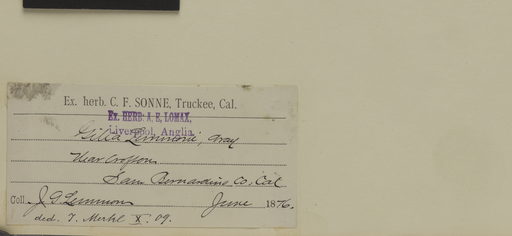 Ex. herb. C. F. SONNE, Truckee, Cal.
Ex. HERB: A. E. LOMAX,
Liverpool, Anglia.
Gilia Lemmoni, Gray
Near Crofton
San Bernardino Co, Cal
Coll. J G Lemmon June 1876.
ded. J. Medd X. 09.